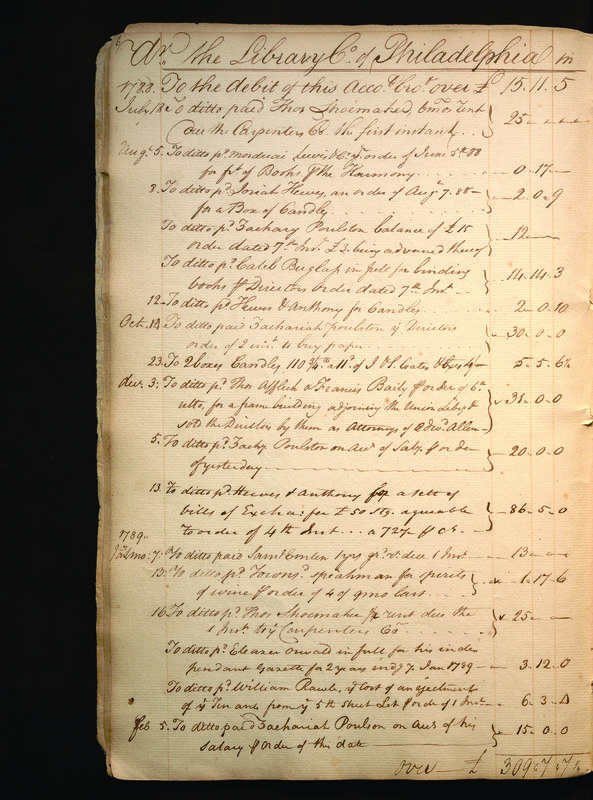 Dr. the Library Co. of Philadelphia in
1788. To the debit of this Acco.t bro.t over £ 15. 11. 5
July 18. To ditto paid Thos Shoemaker, 6 mos Rent
due the Carpenters Co. the first instant... 25 - -
Augt. 5. To ditto pd. Mordecai Lewis & Co. yr. order of June 5th 88
for frt. of Books the Harmony 0. 17 -
8. To ditto pd. Josiah Hewes, an order of Augt. 7. 88 -
for a Box of Candles 2. 0. 9
To ditto pd. Zachary Poulston balance of £15
order dated 7th Inst. £3. being advanced thereof 12 - -
To ditto pd. Caleb Buglass in full for binding
books Directors order dated 7th Inst. 14. 14. 3
12 - To ditto pd. Hewes & Anthony for Candles 2 - 0. 10
Oct. 14 To ditto paid Zachariah Poulston Directors
order of 2 inst. to buy paper 30. 0. 0
23. To 2 boxes Candles, 110 3/4 lb a 11d. of J & S. Coates 5. 5. 6 1/4
dec. 3. To ditto pd. Thos Affleck & Francis Baily order of 6th
ulto, for a frame building adjoining the Union Liby &
sold the Directors by them as Attorneys of Adw. Allen - 35. 0. 0
5. To ditto pd. Zachy. Poulston on Acct of Saly. order
of yesterday 20. 0. 0
13. To ditto pd. Hewes & Anthony for a sett of
bills of Excha: for £50 Stg. agreeable
to order of 4th Inst... a 72 1/2 Ct. - 86. 5. 0
1789.
1st mo: 7. To ditto paid Saml. Emlen 1 yrs gr. rt. due 1 Inst. 13 - -
13. To ditto pd. Townsd. Speakman for spirits
of wine order of 4 of 9mo last 1. 17. 6
16 To ditto pd. Thos Shoemaker for rent due the
1 Inst. to ye Carpenters Co. 25 - -
To ditto pd. Eleazer Oswald in full for his inde
pendant Gazette for 2 years endg 7. Jan 1789 - 3. 12. 0
To ditto pd. William Rawle, ye Cost of an ejectment
of ye Tenants from ye 5th Street Lot order of 1 Inst. 6. 3. 4
feb 5. To ditto paid Zachariah Poulson on Acct of his
salary order of this date 15. 0. 0
over - £ 309. 7. 7 3/4